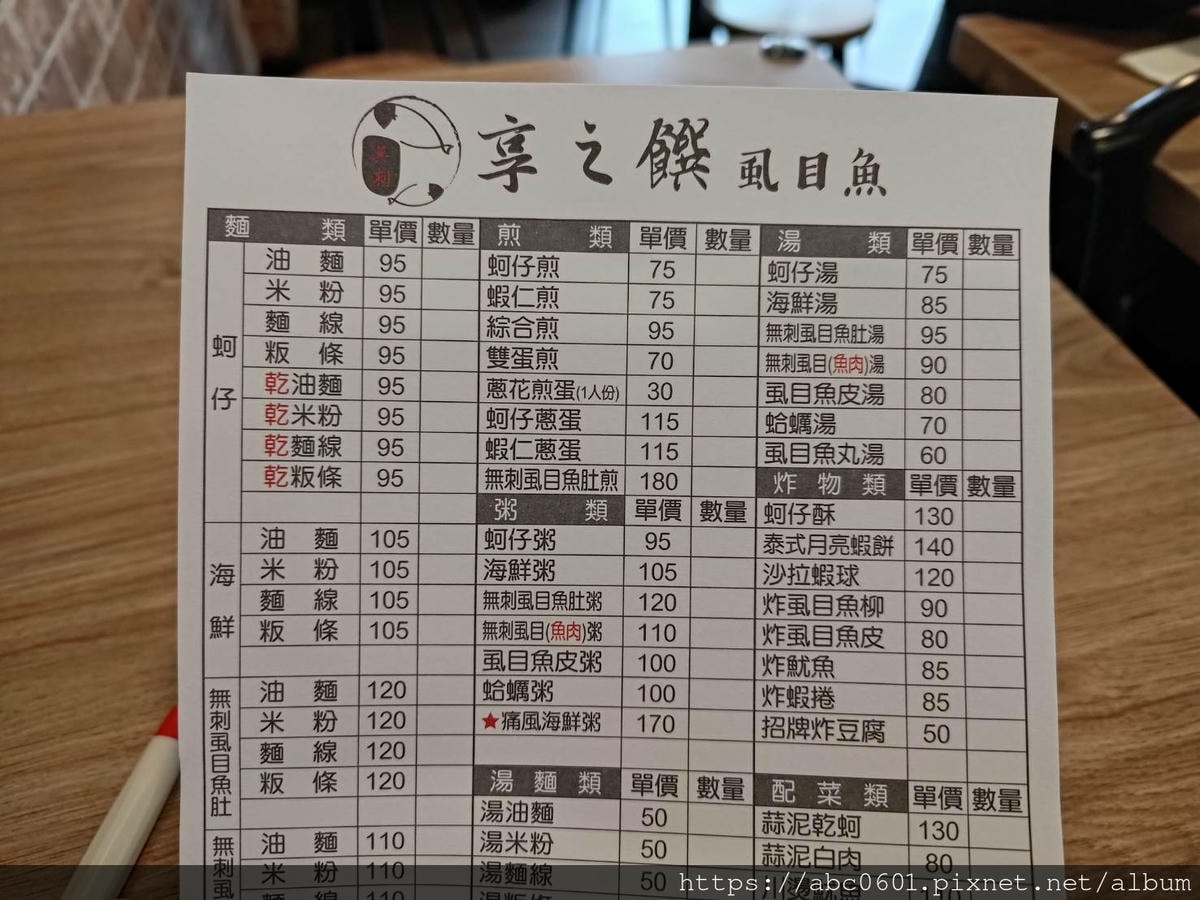 無刺
享之饌 虱目魚
麵類 單價 數量 煎類 單價 數量 湯類 單價 數量
蚵仔 油麵 95 蚵仔煎 75 蚵仔湯 75
米粉 95 蝦仁煎 75 海鮮湯 85
麵線 95 綜合煎 95 無刺虱目魚肚湯 95
粄條 95 雙蛋煎 70 無刺虱目(魚肉)湯 90
乾油麵 95 蔥花煎蛋(1人份) 30 虱目魚皮湯 80
乾米粉 95 蚵仔蔥蛋 115 蛤蠣湯 70
乾麵線 95 蝦仁蔥蛋 115 虱目魚丸湯 60
乾粄條 95 無刺虱目魚肚煎 180 炸物類 單價 數量
粥類 單價 數量 蚵仔酥 130
海鮮 油麵 105 蚵仔粥 95 泰式月亮蝦餅 140
米粉 105 海鮮粥 105 沙拉蝦球 120
麵線 105 無刺虱目魚肚粥 120 炸虱目魚柳 90
粄條 105 無刺虱目(魚肉)粥 110 炸虱目魚皮 80
虱目魚皮粥 100 炸魷魚 85
無刺虱目魚肚 油麵 120 蛤蠣粥 100 炸蝦捲 85
米粉 120 ★痛風海鮮粥 170 招牌炸豆腐 50
麵線 120
粄條 120 湯麵類 單價 數量 配菜類 單價 數量
湯油麵 50 蒜泥乾蚵 130
無刺虱 油麵 110 湯米粉 50 蒜泥白肉 80
米粉 110 湯麵線 50
https://abc0601.pixnet.net/album